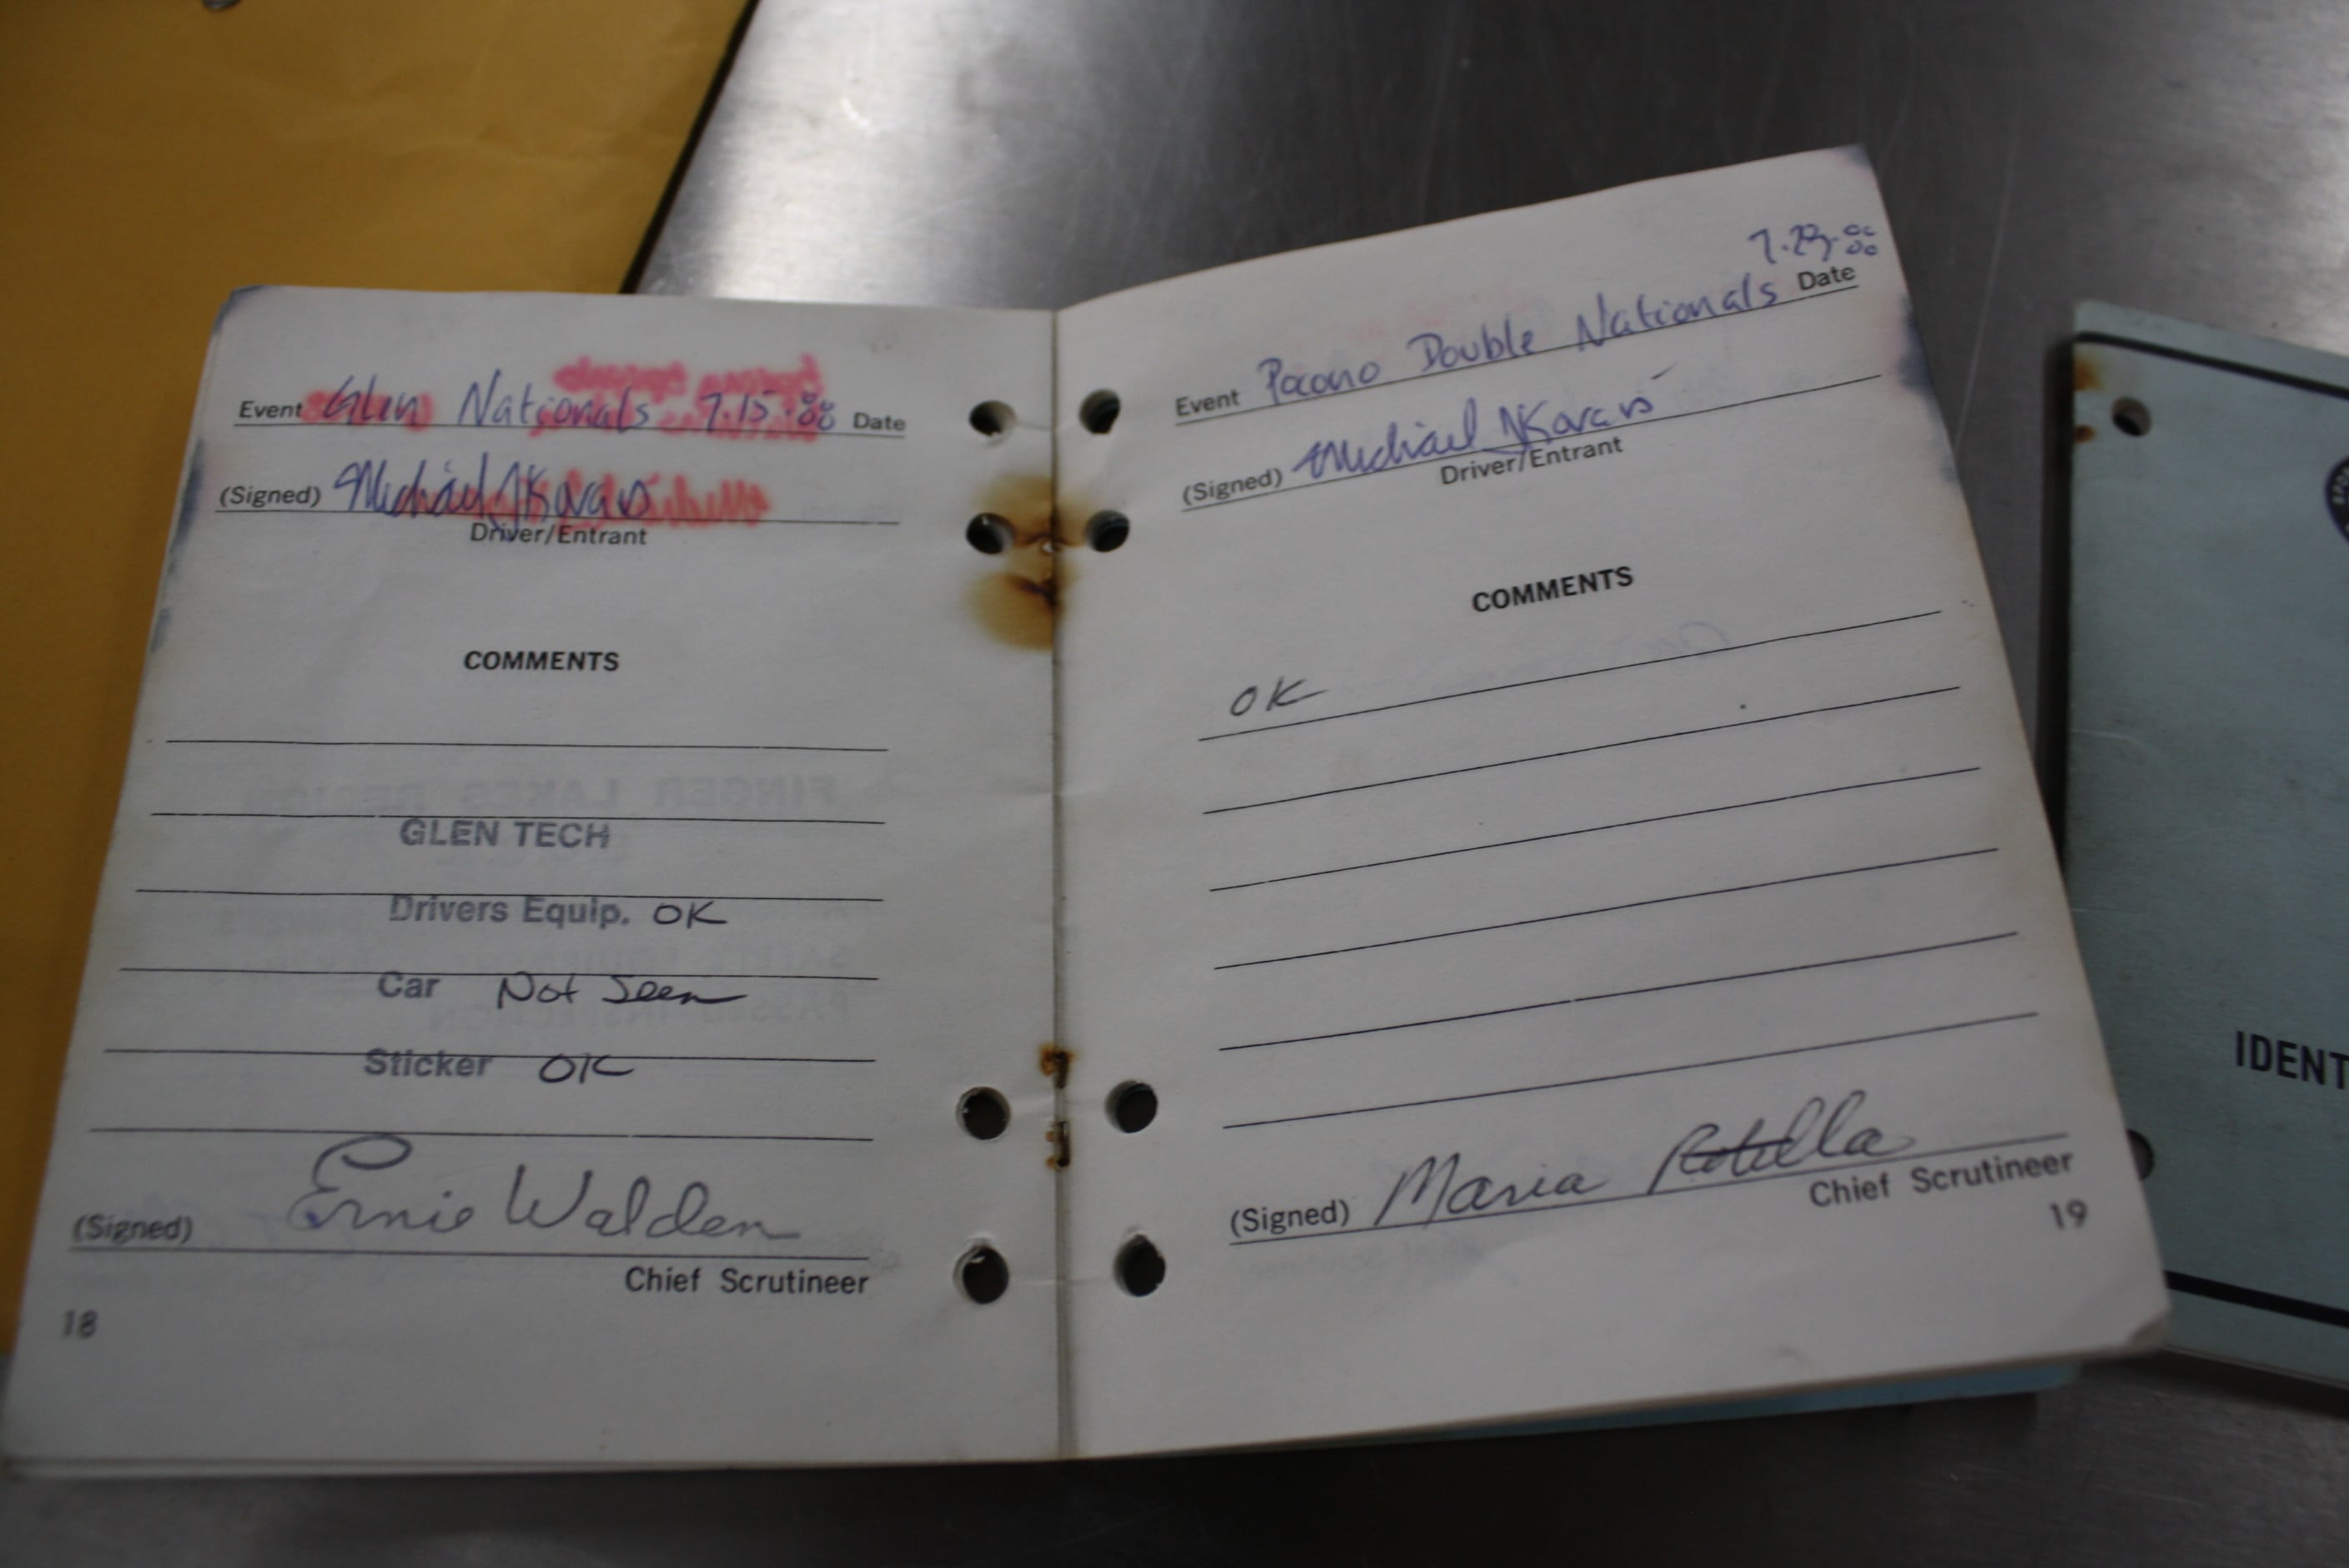 Event Glen Nationals 7.15.88 Date
(Signed) Michael J Kovacs
Driver/Entrant
COMMENTS
GLEN TECH
Drivers Equip. OK
Car Not Seen
Sticker OK
(Signed) Ernie Walden
Chief Scrutineer
18
7.23.88
Event Pocono Double Nationals Date
(Signed) Michael J Kovacs
Driver/Entrant
COMMENTS
OK
(Signed) Maria
Chief Scrutineer
19
IDENT